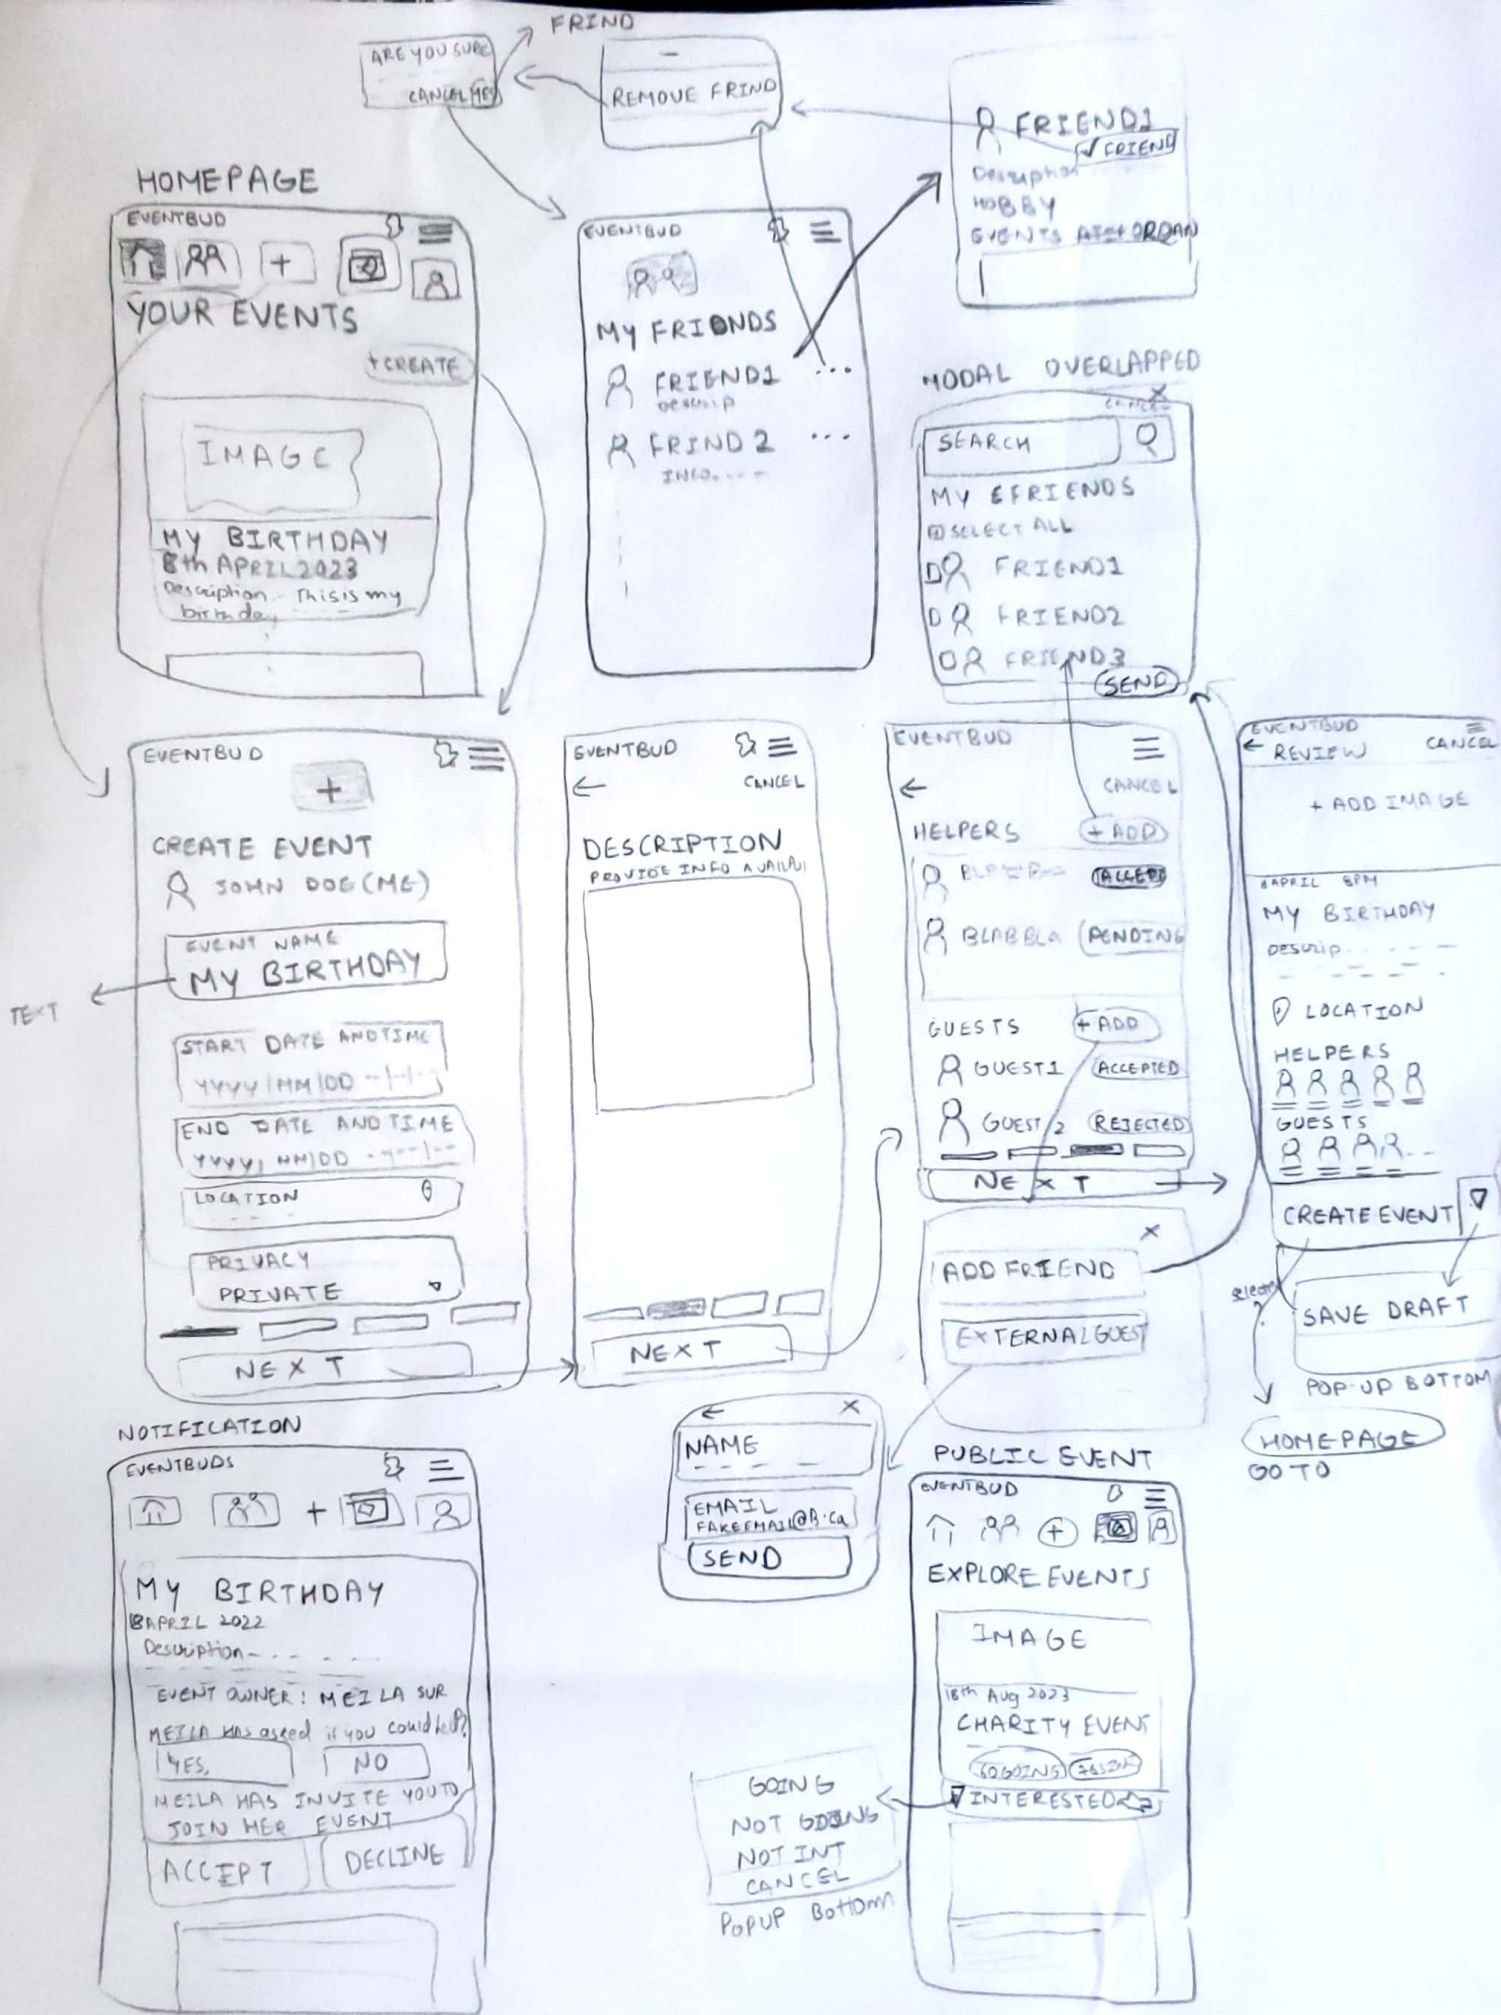 FRIND
ARE YOU SURE
CANCEL YES
REMOVE FRIND
FRIEND1
✓ FRIEND
Description
HOBBY
EVENTS
HOMEPAGE
EVENTBUD
YOUR EVENTS
+CREATE
IMAGE
MY BIRTHDAY
8th APRIL 2023
Description - This is my
birthday
EVENTBUD
MY FRIENDS
FRIEND1 ...
Descrip
FRIND 2 ...
INFO. - - -
MODAL OVERLAPPED
X
CANCEL
SEARCH
MY FRIENDS
SELECT ALL
FRIEND1
FRIEND2
FRIEND3
SEND
EVENTBUD
+
CREATE EVENT
JOHN DOE (ME)
EVENT NAME
MY BIRTHDAY
TEXT
START DATE AND TIME
YYYY/MM/DD --/--/--
END DATE AND TIME
YYYY/MM/DD
LOCATION
PRIVACY
PRIVATE
NEXT
EVENTBUD
CANCEL
DESCRIPTION
PROVIDE INFO
NEXT
EVENTBUD
CANCEL
HELPERS + ADD
BLABLA
BLABBLA PENDING
GUESTS + ADD
GUEST1 ACCEPTED
GUEST 2 REJECTED
NEXT
X
ADD FRIEND
EXTERNAL GUEST
EVENTBUD
REVIEW CANCEL
+ ADD IMAGE
8 APRIL 8PM
MY BIRTHDAY
Descrip - - -
LOCATION
HELPERS
GUESTS
CREATE EVENT
SAVE DRAFT
POP-UP BOTTOM
HOMEPAGE
GO TO
NOTIFICATION
EVENTBUDS
+
MY BIRTHDAY
8 APRIL 2022
Description - - - -
EVENT OWNER: MEILA SUR
MEILA HAS asked if you could help?
YES, NO
MEILA HAS INVITE YOU TO
JOIN HER EVENT
ACCEPT DECLINE
X
NAME
EMAIL
FAKEEMAIL@B.ca
SEND
PUBLIC EVENT
EVENTBUD
+
EXPLORE EVENTS
IMAGE
18th Aug 2023
CHARITY EVENT
60 GOING
INTERESTED
GOING
NOT GOING
NOT INT
CANCEL
POPUP BOTTOM